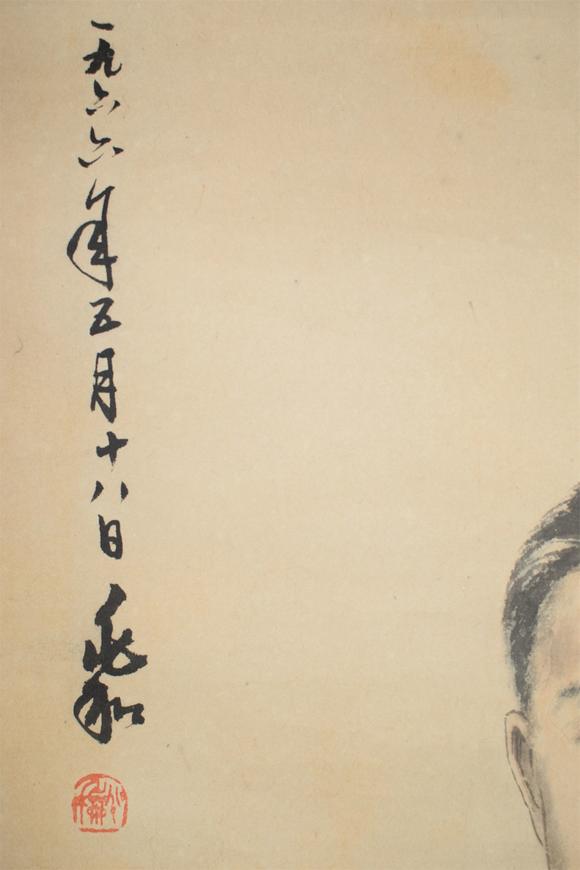 一九六六年五月十八日 兆和